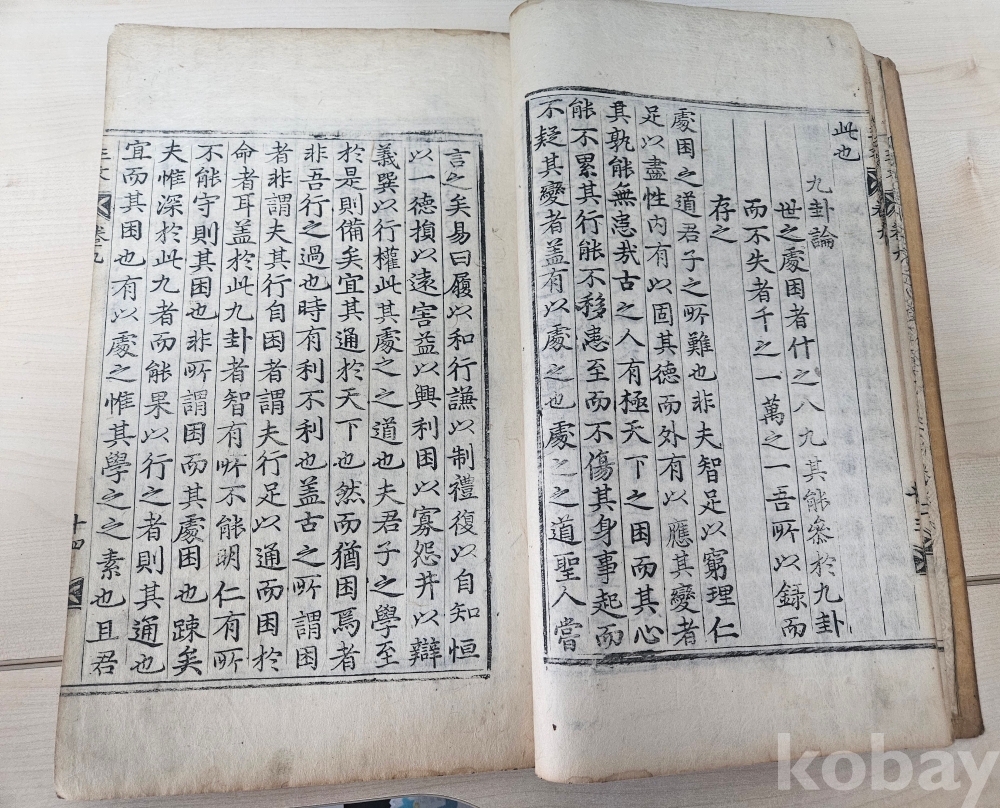 此也
九卦論
世之處困者什之八九其能叅於九卦
而不失者千之一萬之一吾所以録而
存之
處困之道君子之所難也非夫智足以窮理仁
足以盡性內有以固其德而外有以應其變者
其孰能無患哉古之人有極天下之困而其心
能不累其行能不移患至而不傷其身事起而
不疑其變者盖有以處之也處之之道聖人嘗
言之矣易曰履以和行謙以制禮復以自知恒
以一德損以遠害益以興利困以寡怨井以辯
義巽以行權此其處之之道也夫君子之學至
於是則備矣宜其通於天下也然而猶困焉者
非吾行之過也時有利不利也盖古之所謂困
者非謂夫其行自困者謂夫行足以通而困於
命者耳盖於此九卦者智有所不能明仁有所
不能守則其困也非所謂困而其處困也踈矣
夫惟深於此九者而能果以行之者則其通也
宜而其困也有以處之惟其學之之素也且君
卷九
十四
kobay